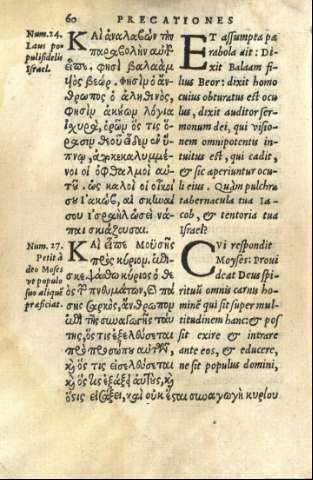 60 PRECATIONES
Num. 24.
Laus po
puli fidelis
Israel.
ΚΑὶ ἀναλαβὼν τὴν
παραβολὴν αὐτοῦ
εἶπε. φησὶ βαλαὰμ
υἱὸς βεώρ. φησὶν ὁ ἄν-
θρωπος ὁ ἀληθινὸς,
φησὶν ἀκούων λόγια
ἰσχυρὰ, ὅς τις ὅ-
ρασιν θεοῦ εἶδεν ἐν ὕ-
πνῳ, ἀποκεκαλυμμέ-
νοι οἱ ὀφθαλμοὶ αὐ-
τοῦ. ὡς καλοὶ οἱ οἶκοί
σου ἰακὼβ, αἱ σκηναὶ
σου ἰσραὴλ ὡσεὶ νά-
παι σκιάζουσαι.
ET assumpta pa
rabola ait: Di-
xit Balaam fi-
lius Beor: dixit homo
cuius obturatus est ocu
lus, dixit auditor ser-
monum dei, qui visio-
nem omnipotentis in
tuitus est, qui cadit,
& sic aperiuntur ocu
li eius. Quàm pulchra
tabernacula tua Ia-
cob, & tentoria tua
Israel?
Num. 27.
Petit à
deo Moses
ut populo
suo aliquē
præficiat.
ΚΑὶ εἶπε Μουσῆς
πρὸς κύριον. ἐπι-
σκεψάσθω κύριος ὁ θε
ὸς τῶν πνευμάτων, καὶ πά
σης σαρκὸς, ἄνθρωπον
ἐπὶ τῆς συναγωγῆς ταύ
της, ὅς τις ἐξελεύσεται
πρὸ προσώπου αὐτῶν,
καὶ ὅς τις εἰσελεύσεται
καὶ ὅς τις ἐξάξει αὐτοὺς, καὶ
ὅς τις εἰσάξει, καὶ οὐκ ἔσται συναγωγὴ κυρίου
CVi respondit
Moyses: Provi
deat Deus spi-
rituū omnis carnis ho
minē qui sit super mul-
titudinem hanc: & pos
sit exire & intrare
ante eos, & educere,
ne sit populus domini,